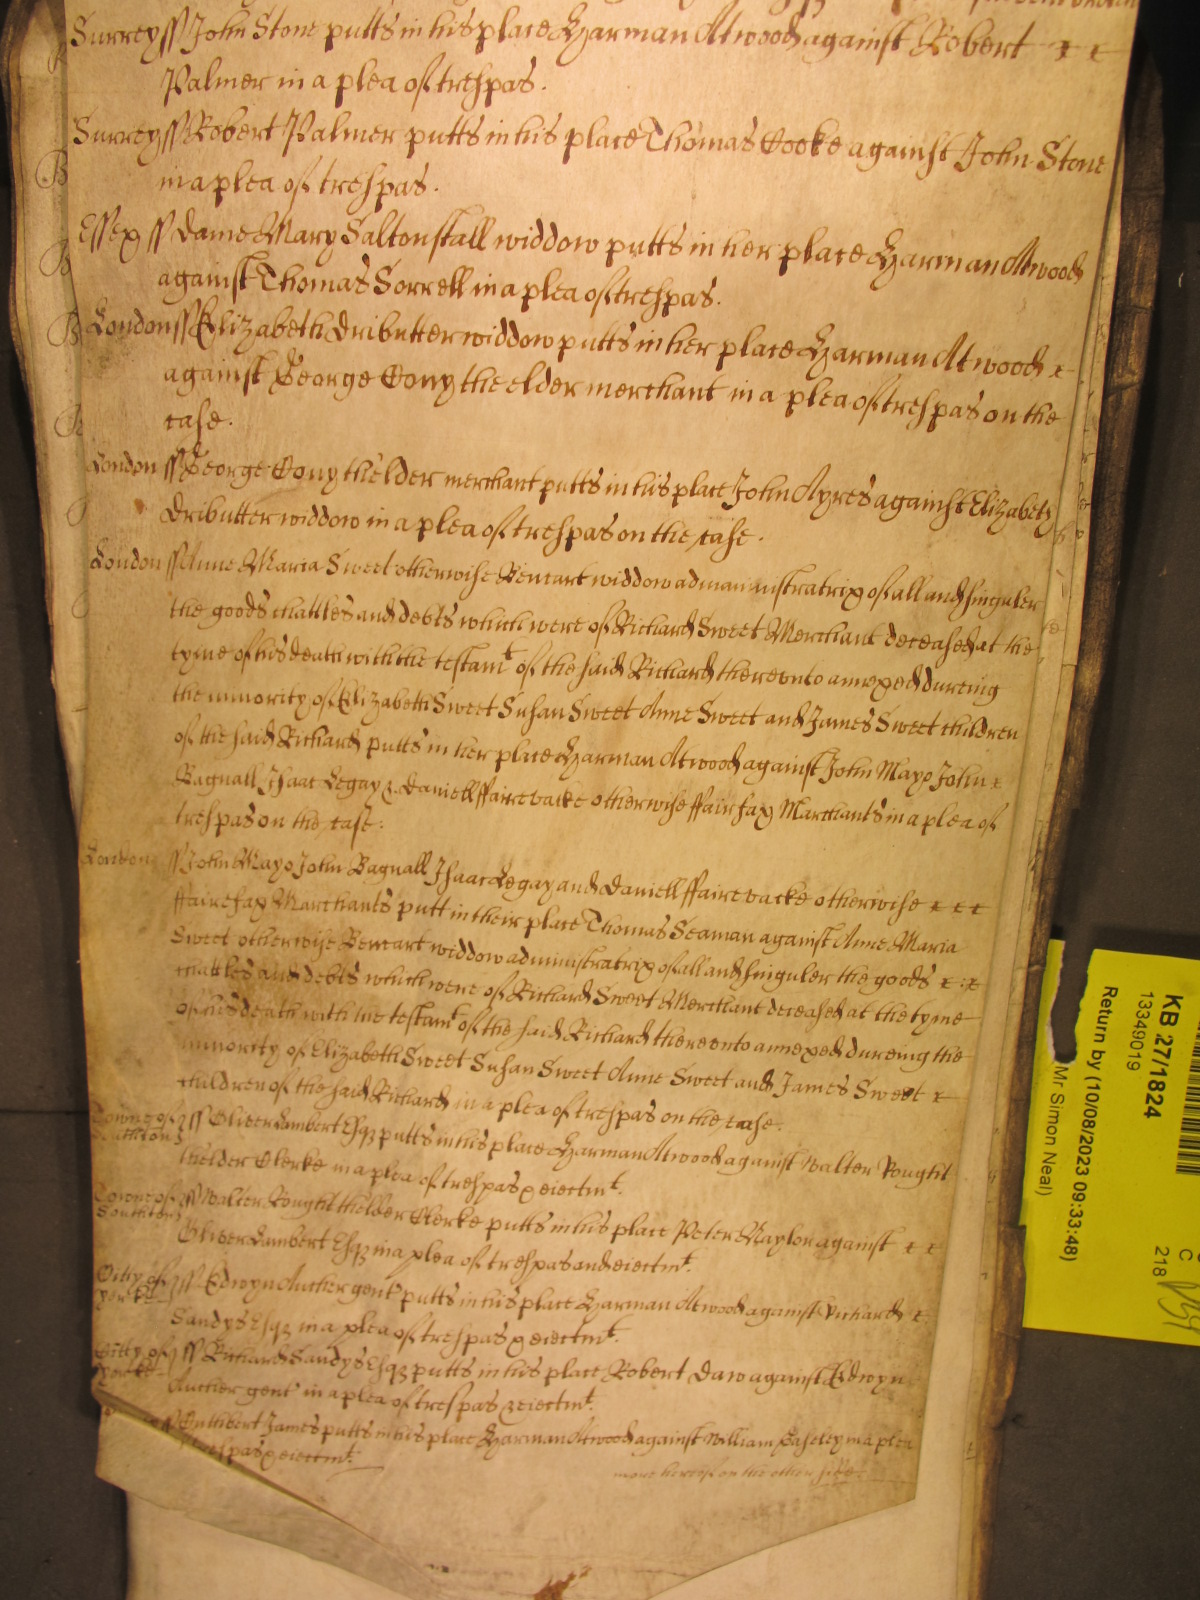 Surrey ss John Stone putts in his place Harman Atwood against Robert
Palmer in a plea of trespas.
Surrey ss Robert Palmer putts in his place Thomas Cooke against John Stone
in a plea of trespas.
Essex ss Dame Mary Saltonstall widdow putts in her place Harman Atwood
against Thomas Sorrell in a plea of trespas.
London ss Elizabeth Dributter widdow putts in her place Harman Atwood
against George Cony the elder merchant in a plea of trespas on the
case.
London ss George Cony thelder merchant putts in his place John Ayres against Elizabeth
Dributter widdow in a plea of trespas on the case.
London ss Anne Maria Sweet otherwise Bewart widdow administratrix of all and singuler
the goods chattles and debts which were of Richard Sweet Merchant deceased at the
tyme of his death with the testamt of the said Richard thereunto annexed dureing
the minority of Elizabeth Sweet Susan Sweet Anne Sweet and James Sweet children
of the said Richard putts in her place Harman Atwood against John Mayo John
Bagnall Isaac Legay & Daniell ffairevacke otherwise ffairfax Marchants in a plea of
trespas on the case.
London ss John Mayo John Bagnall Isaac Legay and Daniell ffairevacke otherwise
ffairefax Marchants putt in their place Thomas Seaman against Anne Maria
Sweet otherwise Bewart widdow administratrix of all and singuler the goods
chattles and debts which were of Richard Sweet Merchant deceased at the tyme
of his death with the testamt of the said Richard thereunto annexed dureing the
minority of Elizabeth Sweet Susan Sweet Anne Sweet and James Sweet
children of the said Richard in a plea of trespas on the case.
Towne of Southton ss Oliver Lambert Esqr putts in his place Harman Atwood against Walter Rought
thelder Clerke in a plea of trespas & eiectmt.
Towne of Southton ss Walter Rought thelder Clerke putts in his place Peter Naylor against
Oliver Lambert Esqr in a plea of trespas and eiectmt.
Citty of Yorke ss Edwyn Aucher gent putts in his place Harman Atwood against Richard
Sandys Esqr in a plea of trespas & eiectmt.
Citty of Yorke ss Richard Sandys Esqr putts in his place Robert Daw against Edwyn
Aucher gent in a plea of trespas & eiectmt.
ss Cuthbert James putts in his place Harman Atwood against William Caseley in a plea
trespas & eiectmt.
more hereof on the other side
KB 27/1824
13349019
Return by (10/08/2023 09:33:48)
Mr Simon Neal)
C
218